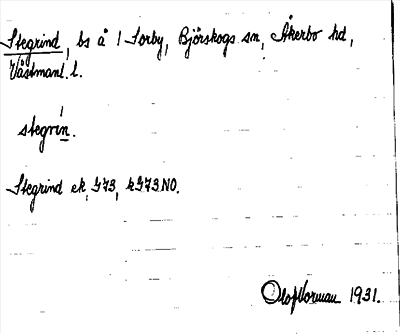 Stegrind, bs å 1 Torby, Björskogs sn, Åkerbo hd,
Västmanl. l.
stegrin.
Stegrind ek, G73, kG73NO.
Olof Norman 1931.